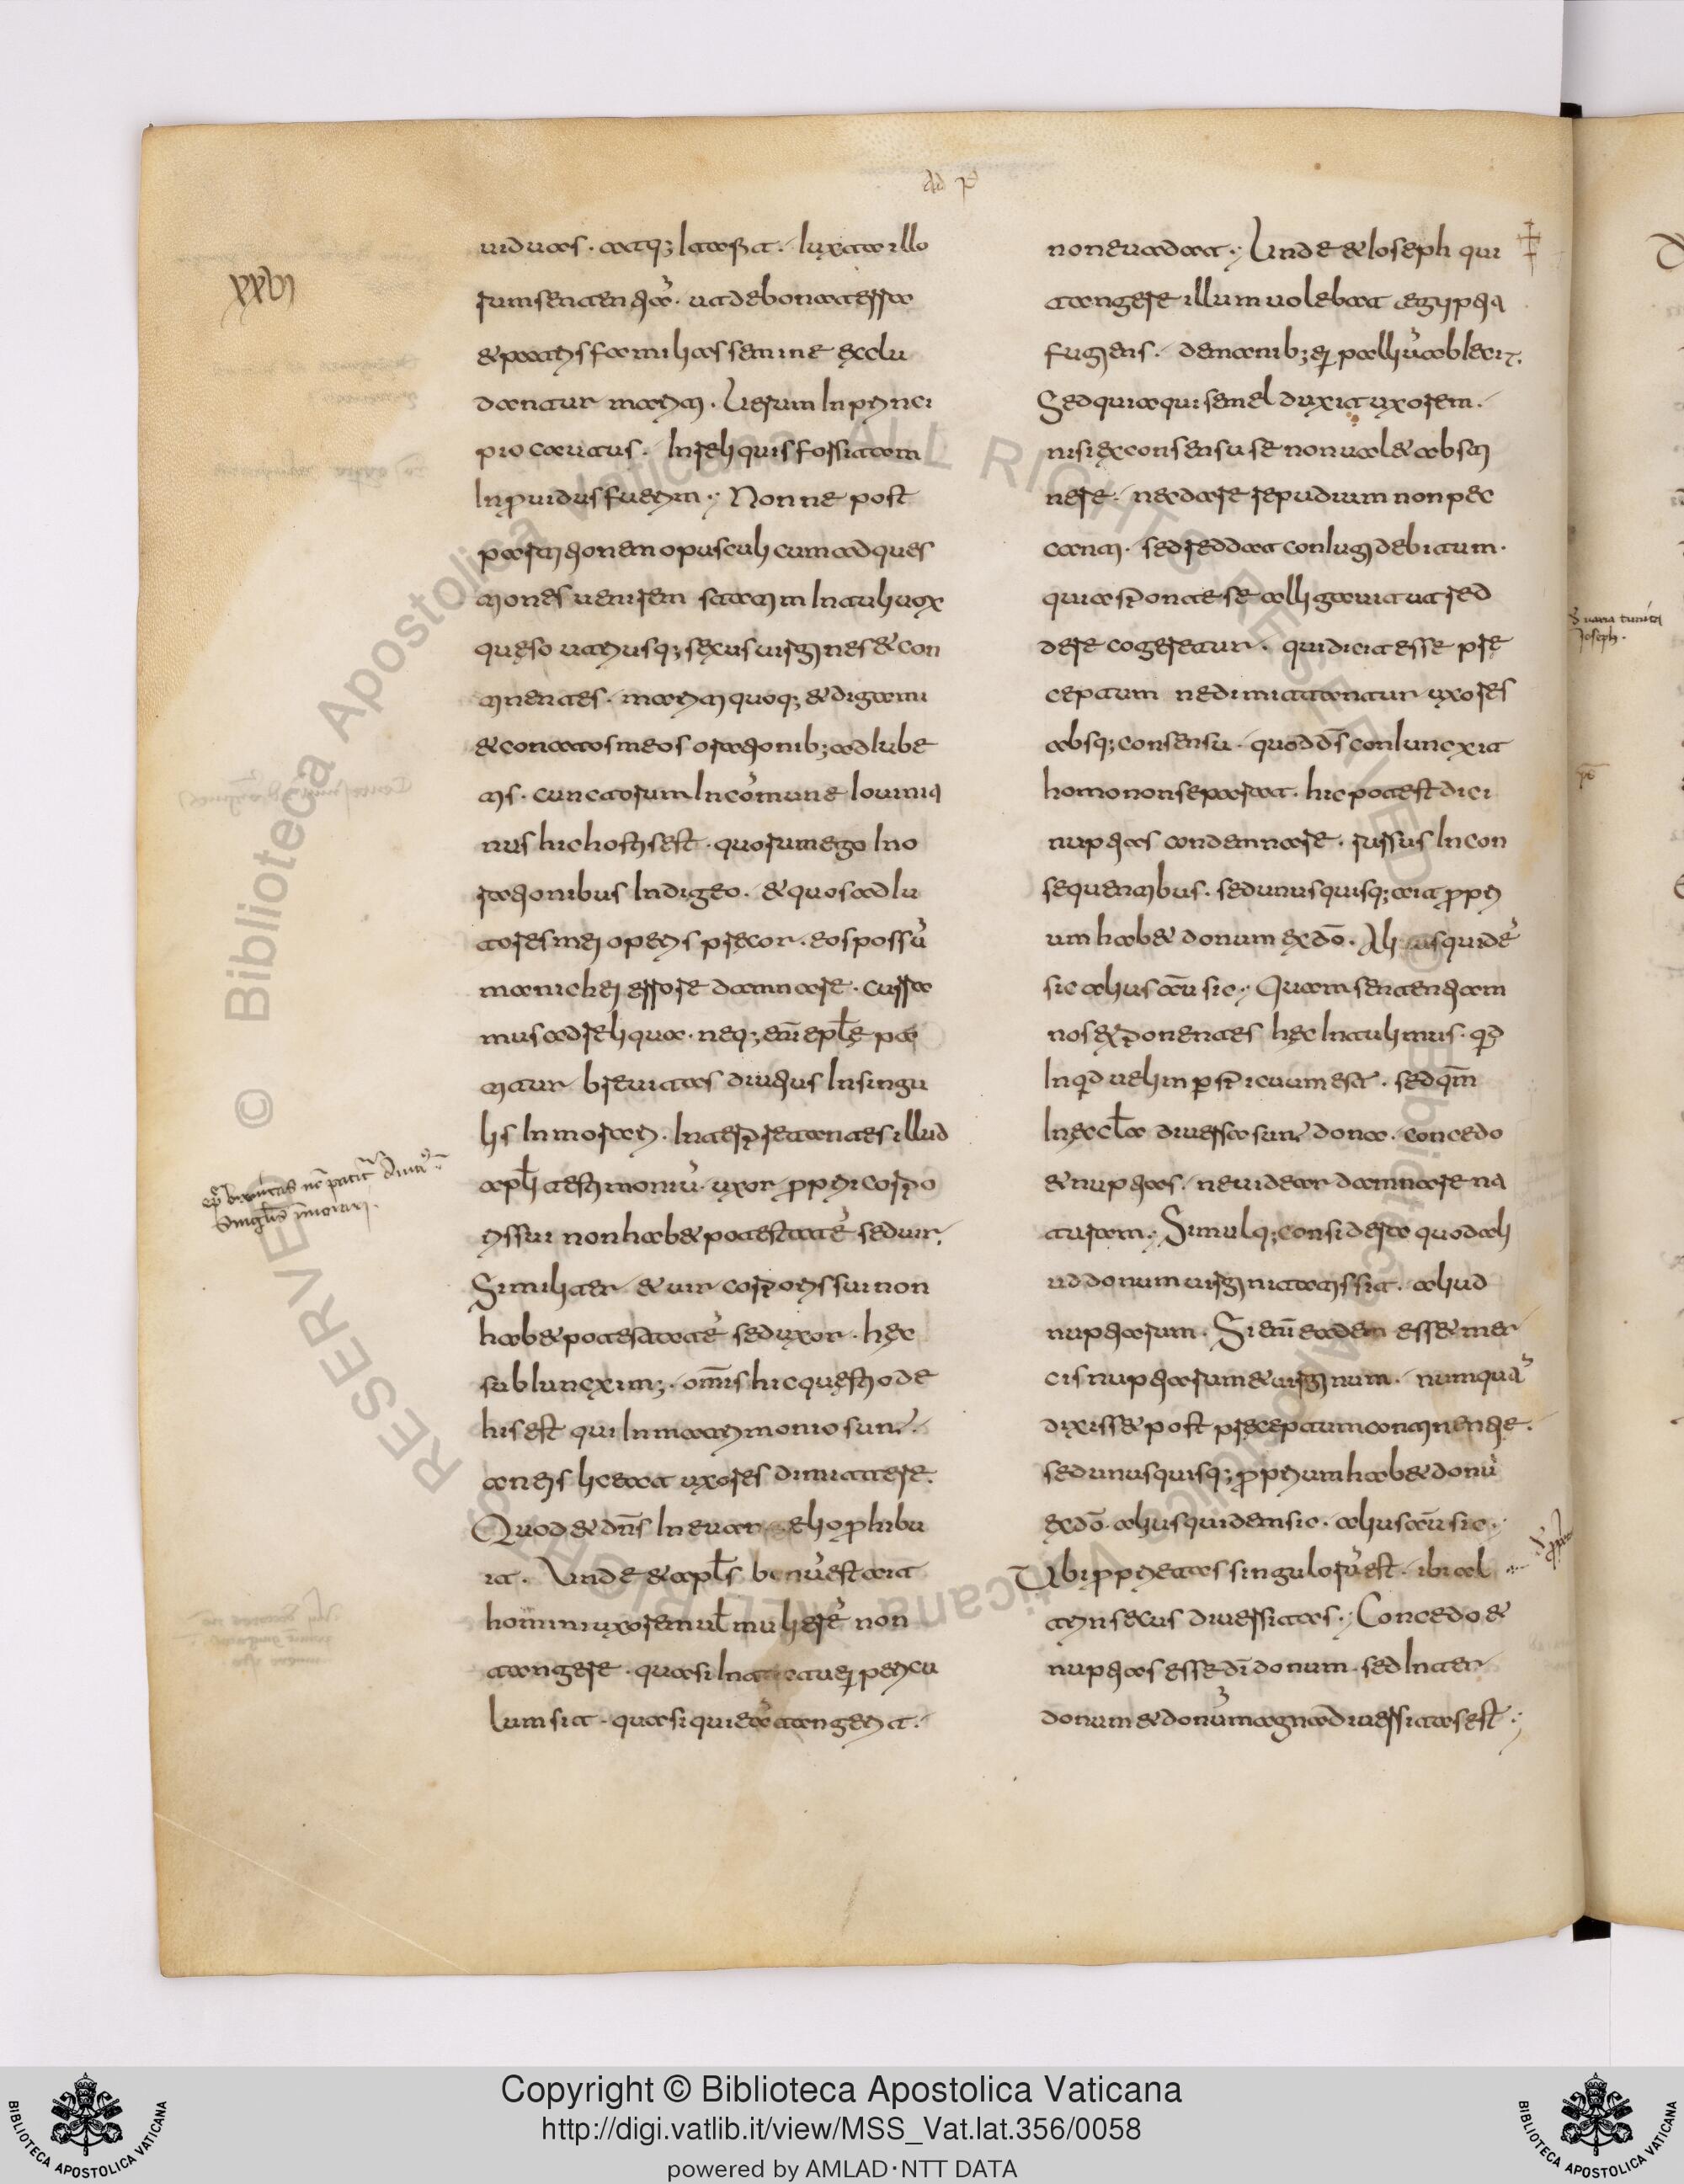 ad p
XXVI
uiduas. atq; lata est. Iuxta illo
rum sententiā. ut de bona terra
& patris familias semine exclu
dantur mariti. Uerum In princi
pio cautus. In reliquis forsitam
Inprouidus fuerim; Nonne post
partitionem opusculi cum ad ques
tiones uenirem statim Intuli uox
queso utriusq; sexus uirgines & con
tinentes. mariti quoq; & digami
& conatos meos orationib; ad Iube
tis. cunctorum In cōmune Iouinia
nus hic hostis est. quorum ego In o
rationibus Indigeo. & quos ad Iu
tores mei operis precor. eos possū
manichei errore damnare. curra
mus ad reliqua. neq; enī eplę pa
titur breuitas diutius In singu
lis Inmorari. Interpretantes illud
apli testimoniū. uxor proprii corpo
ris sui non hab& potestatē sed uir.
Similiter & uir corporis sui non
hab& potestatē sed uxor. hęc
subIunximus. omīs hic questio de
his est qui In matrimonio sunt.
an eis liceat uxores dimittere.
Quod & dn̄s In euangelio prohibu
it. Unde & apls bonū est ait
homini uxorem ul mulierē non
tangere. quasi In tactu ei periculum
lum sit. quasi qui eā tangerit.
epl breuitas nō patitr diuti'
singlis īmorari.
non euadat; Unde & Ioseph qui
tangere illum uolebat egiptia
fugiens. demanib; ei palliū ablecit.
Sed quia qui semel duxit uxorem.
nisi ex consensu se non ual& absti
nere. nec dare repudium non pec
canti. sed reddat coniugi debitum.
quia sponte se alligauit ut red
dere cogeretur. qui dicit esse pre
ceptum ne dimittantur uxores
absq; consensu. quod ds̄ conIuncxit
homo non separat. hic potest dici
nuptias condemnare. rursus In con
sequentibus. sed unusquisq; ait propri
um hab& donum ex dō. Alius quidē
sic alius aū sic; Quam sententiam
nos exponentes hęc Intulimus. quid
Inquid uelim perspicuum est. sed qm̄
In eccla diuersa sunt dona. concedo
& nuptias. ne uidear damnare na
turam; Simulq; considera quod ali
ud donum uirginitatis sit. aliud
nuptiarum. Si enī eadem ess& mer
cis nuptiarum & uirginum. numquā
dixiss& post preceptum continentie.
sed unusquisq; proprium hab& donū
ex dō. alius quidem sic. alius aū sic;
Ubi proprietas singulorū est. ibi al
trinsecus diuersitas; Concedo &
nuptias esse dī donum. sed Inter
donum & donum magna diuersitas est;
S uaria tunica
Joseph.
Copyright © Biblioteca Apostolica Vaticana
http://digi.vatlib.it/view/MSS_Vat.lat.356/0058
powered by AMLAD·NTT DATA
BIBLIOTECA APOSTOLICA VATICANA
BIBLIOTECA APOSTOLICA VATICANA